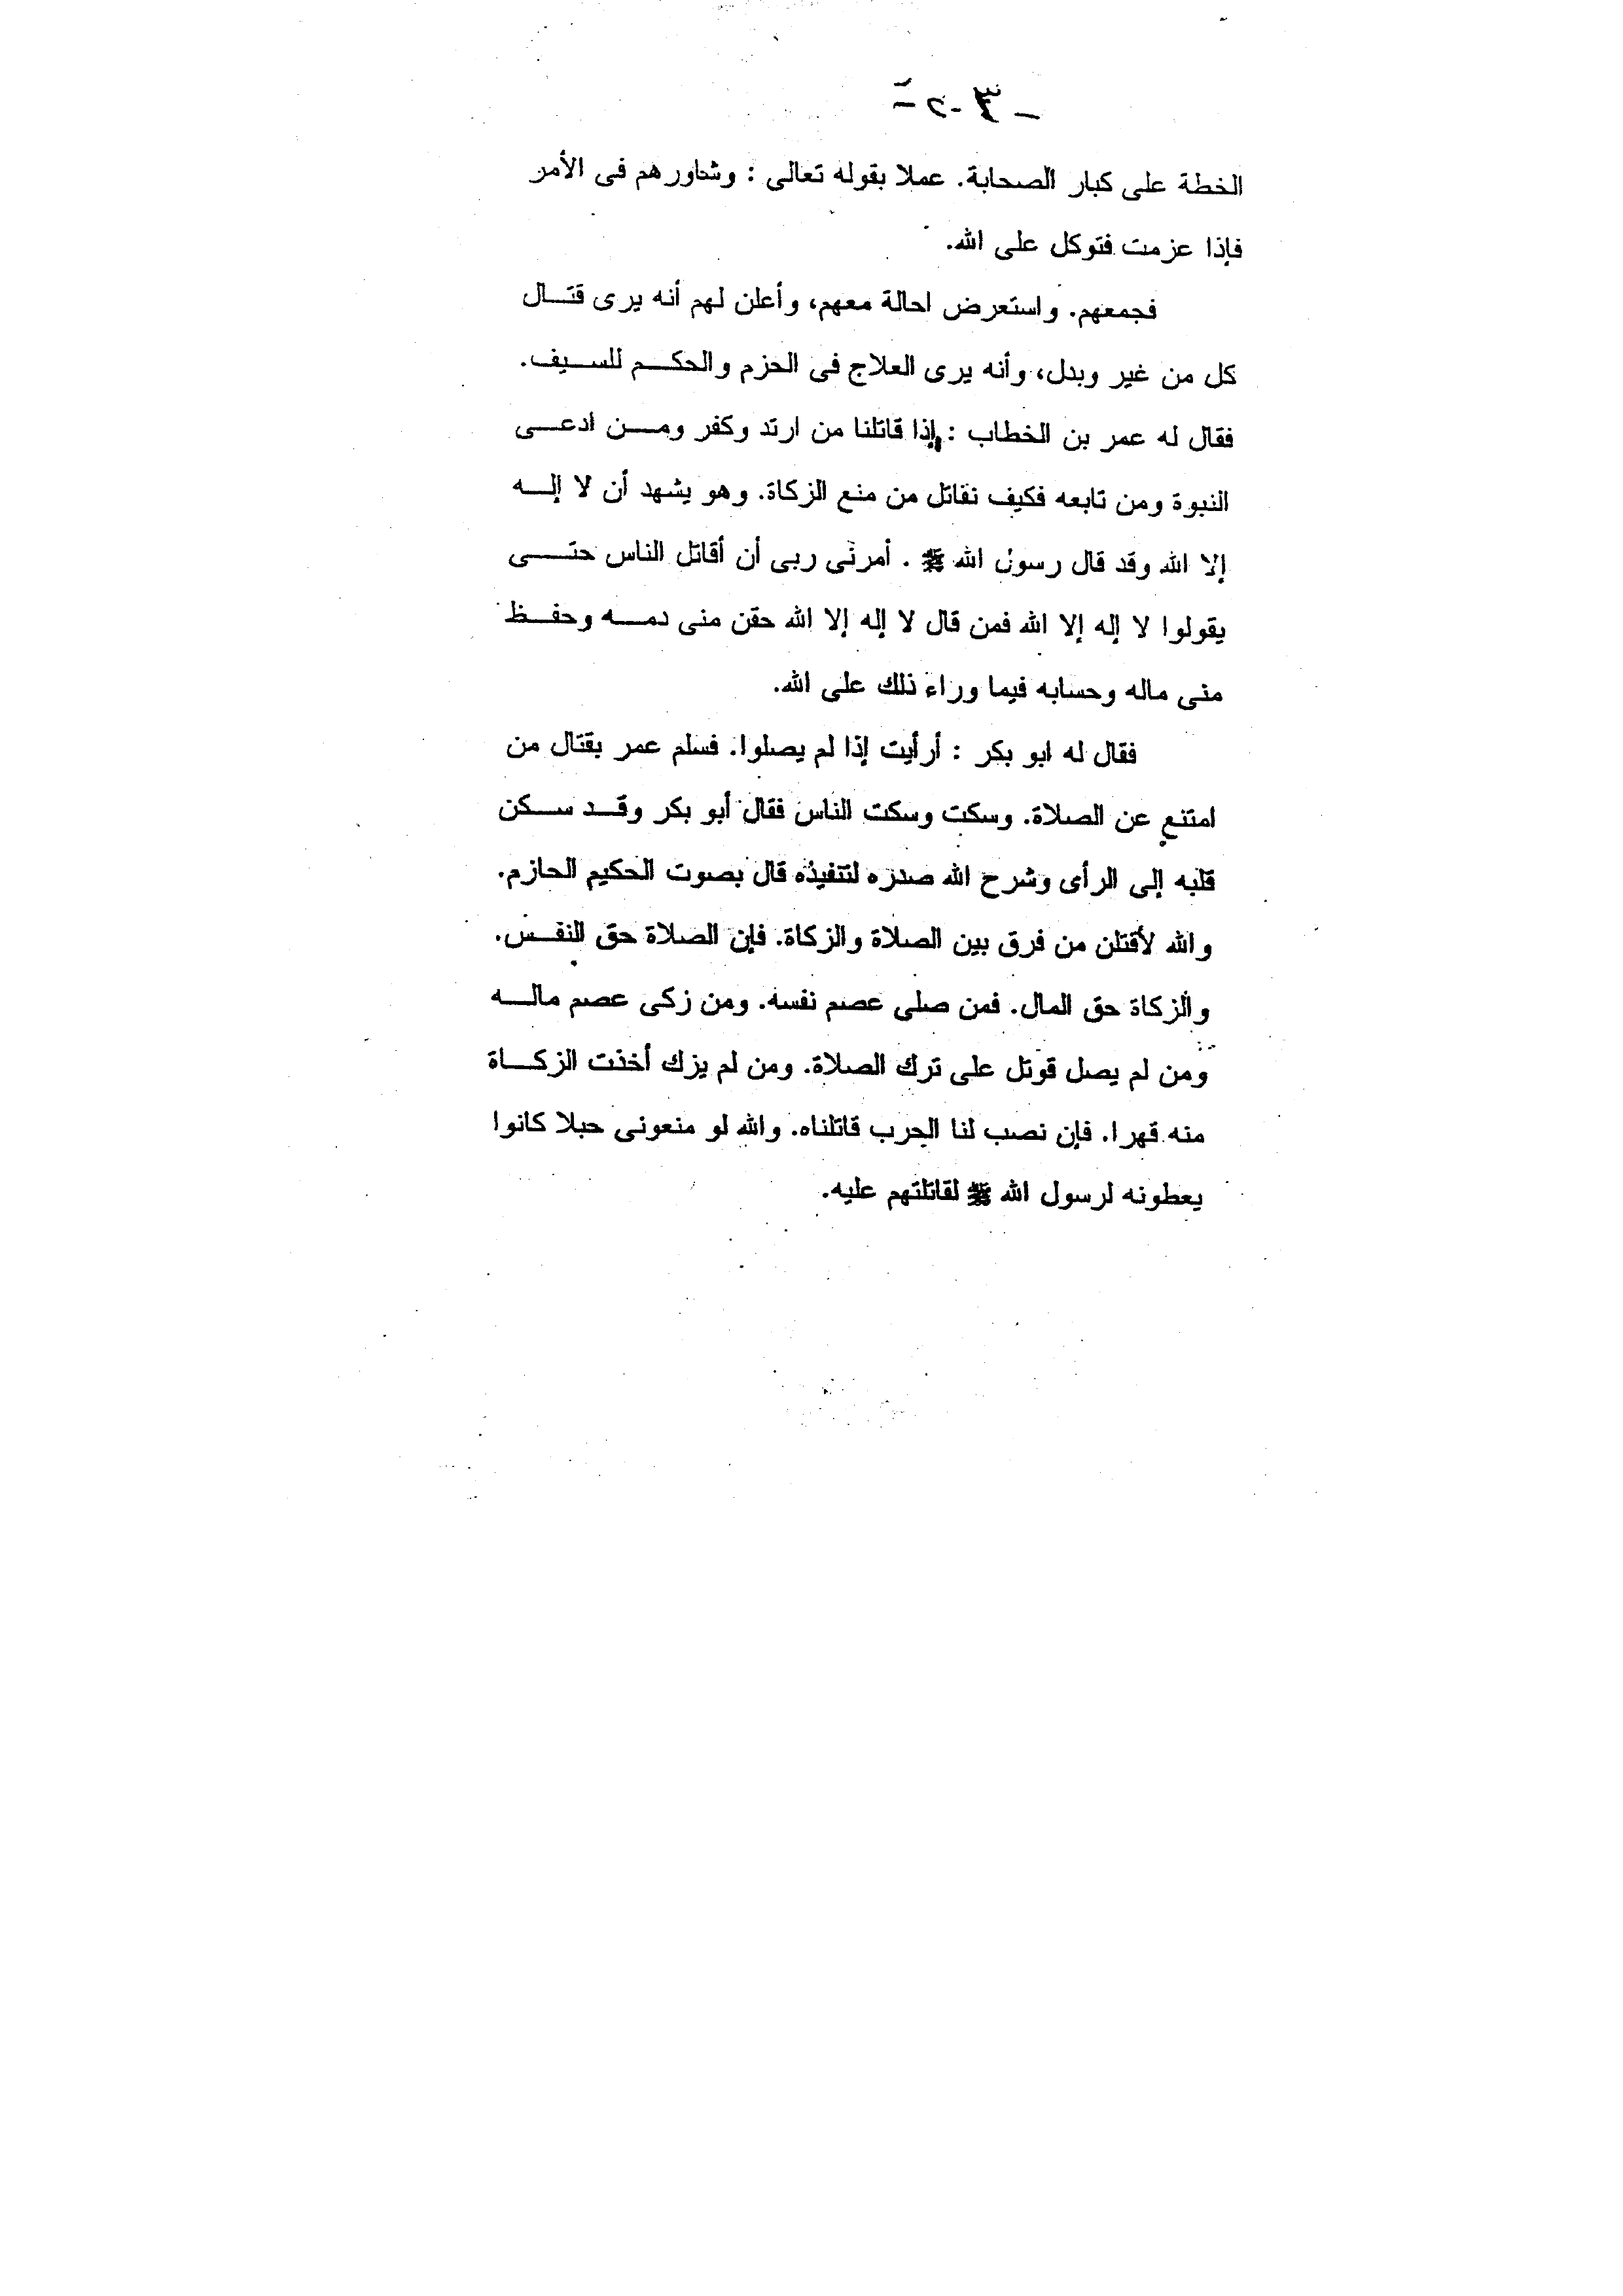 الخطة على كبار الصحابة. عملا بقوله تعالى : وشاورهم فى الأمر
فإذا عزمت فتوكل على الله.
فجمعهم. واستعرض احالة معهم، وأعلن لهم أنه يرى قتال
كل من غير وبدل، وأنه يرى العلاج فى الحزم والحكم للسيف.
فقال له عمر بن الخطاب : إذا قاتلنا من ارتد وكفر ومن ادعى
النبوة ومن تابعه فكيف نقاتل من منع الزكاة. وهو يشهد أن لا إله
إلا الله وقد قال رسول الله ﷺ . أمرنى ربى أن أقاتل الناس حتى
يقولوا لا إله إلا الله فمن قال لا إله إلا الله حقن منى دمه وحفظ
منى ماله وحسابه فيما وراء ذلك على الله.
فقال له ابو بكر : أرأيت إذا لم يصلوا. فسلم عمر بقتال من
امتنع عن الصلاة. وسكت وسكت الناس فقال أبو بكر وقد سكن
قلبه إلى الرأى وشرح الله صدره لتنفيذه قال بصوت الحكيم الحازم.
والله لأقتلن من فرق بين الصلاة والزكاة. فإن الصلاة حق النفس.
والزكاة حق المال. فمن صلى عصم نفسه. ومن زكى عصم ماله
ومن لم يصل قوتل على ترك الصلاة. ومن لم يزك أخذت الزكاة
منه قهرا. فإن نصب لنا الحرب قاتلناه. والله لو منعونى حبلا كانوا
يعطونه لرسول الله ﷺ لقاتلتهم عليه.